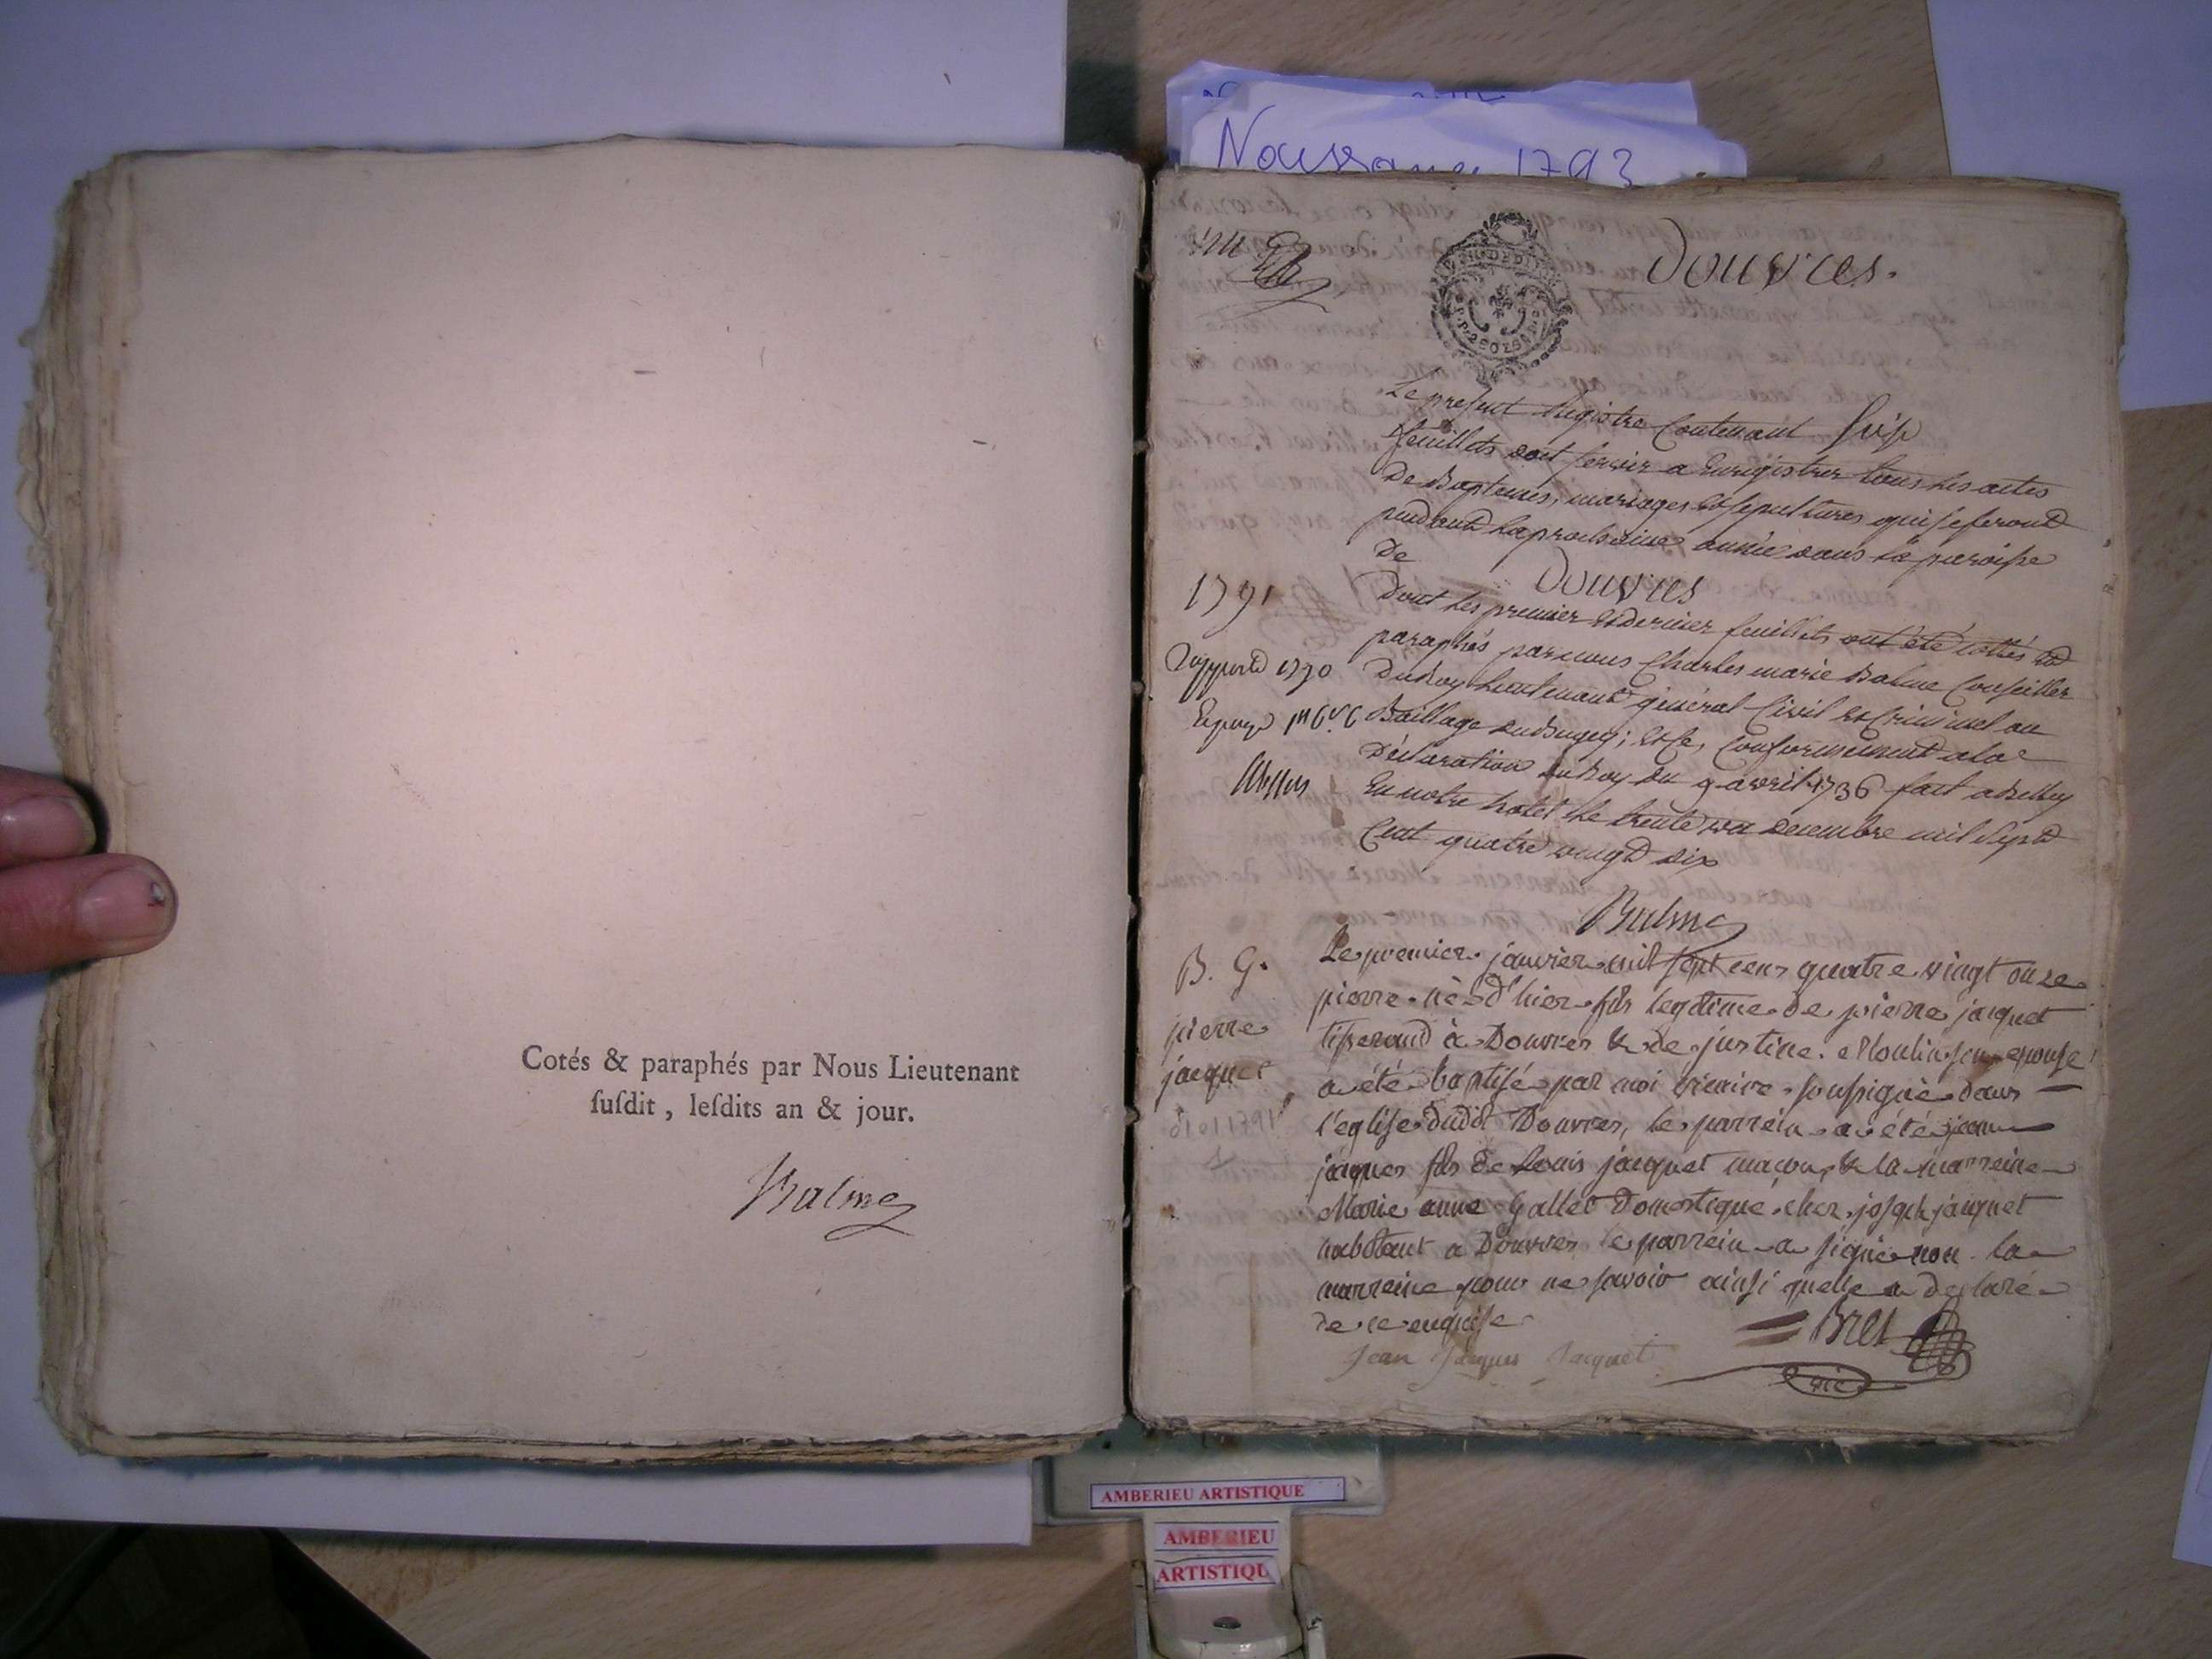 Cotés & paraphés par Nous Lieutenant
ſuſdit, leſdits an & jour.
Balme
1793
Douvres.
Le present Registre Contenant Six
feuillets doit servir a Enregistrer tous les actes
De Baptemes, mariages et sepultures qui se feront
pendant la prochaine année dans la paroisse
De Douvres
Dont les premier et dernier feuillets ont été cottés et
paraphés par nous Charles marie Balme Conseiller
Du Roy Lieutenant général Civil et Criminel au
Baillage du Bugey; et ce, Conformement a la
Déclaration du Roy du 9 avril 1736 fait a Belley
En notre hotel le trente un decembre mil sept
Cent quatre vingt dix
Balme
1791
1790
B. G.
pierre
jacquet
Le premier janvier mil sept cens quatre vingt onze
pierre né d'hier fils legitime de pierre jaquet
tisserand à Douvres & de justine Moulin son epouse
a été baptisé par moi vicaire soussigné dans
l'eglise dudit Douvres, le parrein a été jean
jaques fils de Louis jacquet maçon, & la marreine
Marie anne Gallet Domestique chez joseph jaquet
habitant a Douvres le parrein a signé non la
marreine pour ne savoir ainsi quelle a declaré
de ce enquise
Jean Jaques Jacquet
Bret
vic
AMBERIEU ARTISTIQUE
AMBERIEU
ARTISTIQU